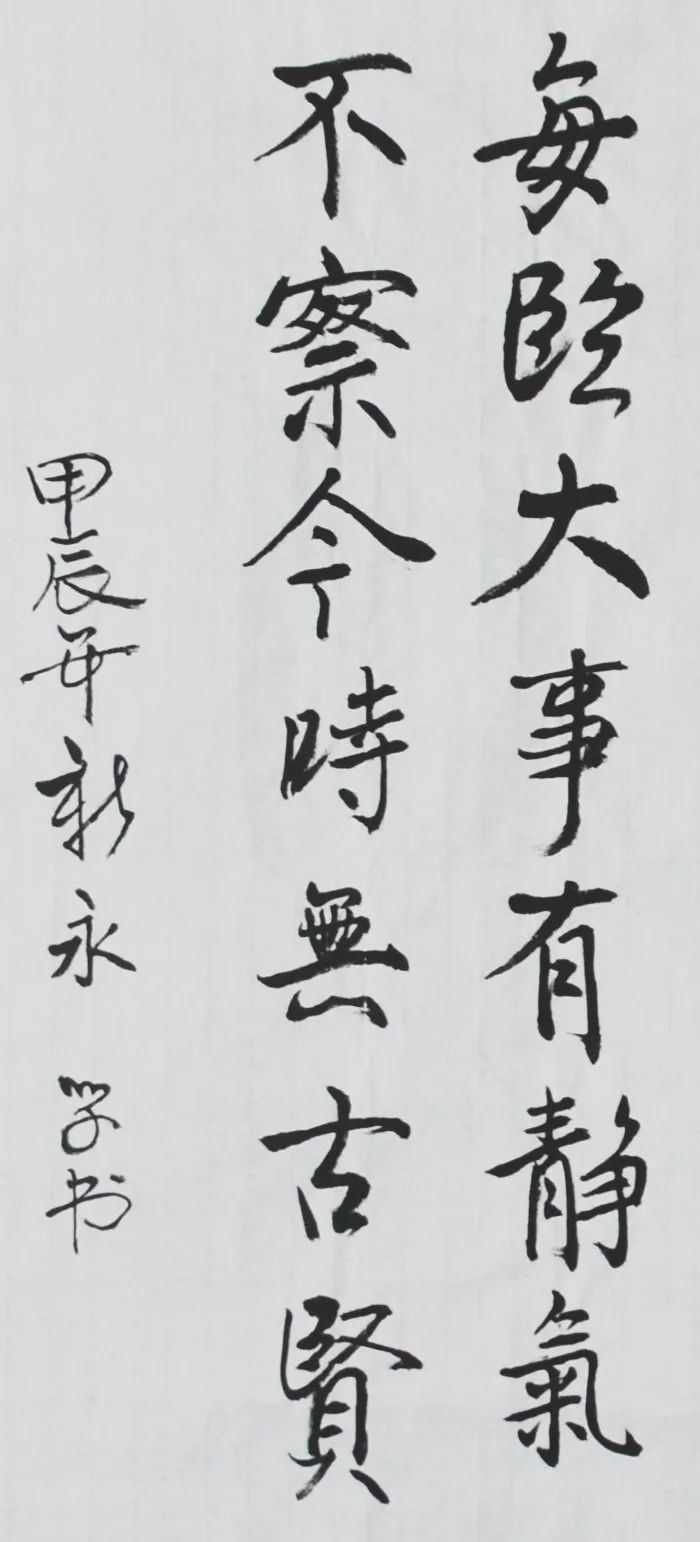 每臨大事有静氣
不察今時無古賢
甲辰年新永 学书